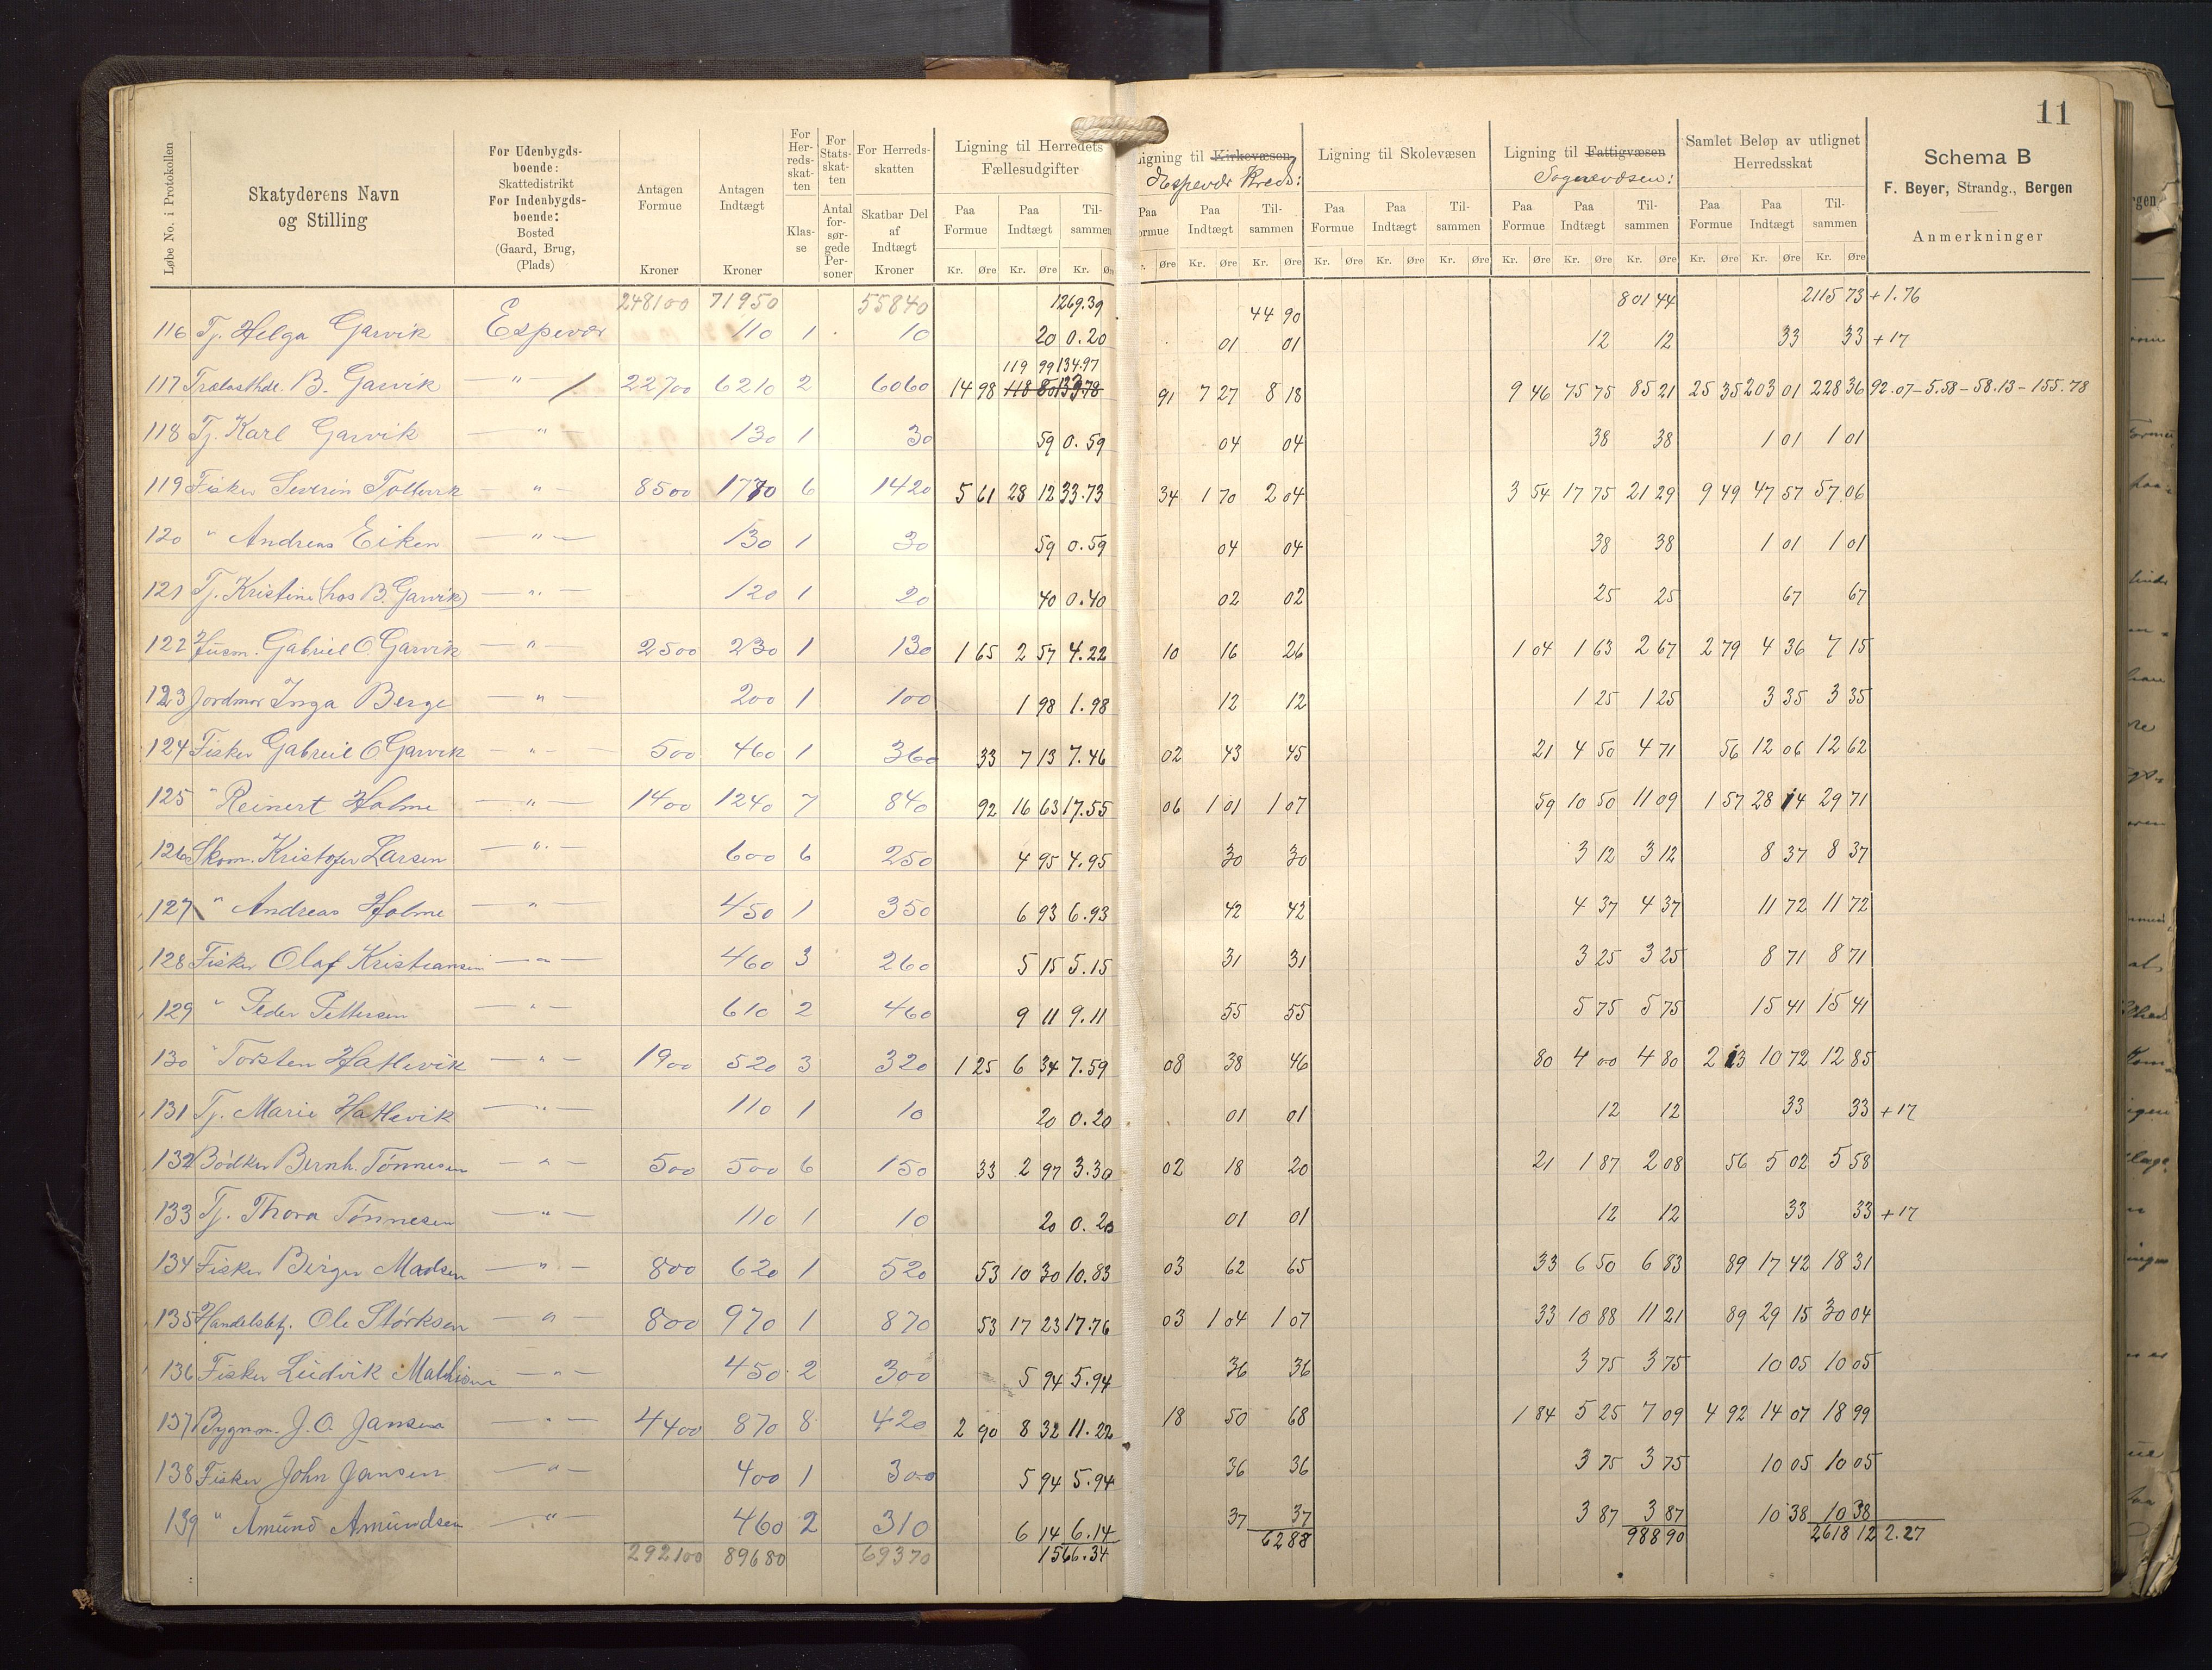 11
Løbe No. i Protokollen
Skatyderens Navn og Stilling
For Udenbygdsboende: Skattedistrikt For Indenbygdsboende: Bosted (Gaard, Brug, (Plads)
Antagen Formue Kroner
Antagen Indtægt Kroner
For Herredsskatten Klasse
For Statsskatten Antal forsørgede Personer
For Herredsskatten Skatbar Del af Indtægt Kroner
Ligning til Herredets Fællesudgifter
Ligning til Kirkevæsen Espevær Kreds:
Ligning til Skolevæsen
Ligning til Fattigvæsen Sognevæsen:
Samlet Beløp av utlignet Herredsskat
Schema B
F. Beyer, Strandg., Bergen
Anmerkninger
Paa Formue Paa Indtægt Tilsammen
Kr. Øre Kr. Øre Kr. Øre
248100 71950 55840 1269.39 44 90 801 44 2115 73 +1.76
116 Tj. Helga Garvik Espevær 110 1 10 20 0.20 01 01 12 12 33 33 +17
119 99 134.97
117 Trælasthdl. B. Garvik — " — 22700 6210 2 6060 14 98 118 80 133.78 91 7 27 8 18 9 46 75 75 85 21 25 35 203 01 228 36 92.07 – 5.58 – 58.13 – 155.78
118 Tj. Karl Garvik — " — 130 1 30 59 0.59 04 04 38 38 1 01 1 01
119 Fisker Severin Tollevik — " — 8500 1770 6 1420 5 61 28 12 33.73 34 1 70 2 04 3 54 17 75 21 29 9 49 47 57 57.06
120 " Andreas Eiken — " — 130 1 30 59 0.59 04 04 38 38 1 01 1 01
121 Tj. Kristine (hos B. Garvik) — " — 120 1 20 40 0.40 02 02 25 25 67 67
122 Husm. Gabriel O. Garvik — " — 2500 230 1 130 1 65 2 57 4.22 10 16 26 1 04 1 63 2 67 2 79 4 36 7 15
123 Jordmor Inga Berge — " — 200 1 100 1 98 1.98 12 12 1 25 1 25 3 35 3 35
124 Fisker Gabreil O Garvik — " — 500 460 1 360 33 7 13 7.46 02 43 45 21 4 50 4 71 56 12 06 12 62
125 " Reinert Holme — " — 1400 1240 7 840 92 16 63 17.55 06 1 01 1 07 59 10 50 11 09 1 57 28 14 29 71
126 Skom. Kristofer Larsen — " — 600 6 250 4 95 4.95 30 30 3 12 3 12 8 37 8 37
127 " Andreas Holme — " — 450 1 350 6 93 6.93 42 42 4 37 4 37 11 72 11 72
128 Fisker Olaf Kristiansen — " — 460 3 260 5 15 5.15 31 31 3 25 3 25 8 71 8 71
129 " Peder Pettersen — " — 610 2 460 9 11 9.11 55 55 5 75 5 75 15 41 15 41
130 " Torsten Hatlevik — " — 1900 520 3 320 1 25 6 34 7.59 08 38 46 80 4 00 4 80 2 13 10 72 12 85
131 Tj. Marie Hatlevik — " — 110 1 10 20 0.20 01 01 12 12 33 33 +17
132 Bødker Bernh. Tønnesen — " — 500 500 6 150 33 2 97 3.30 02 18 20 21 1 87 2 08 56 5 02 5 58
133 Tj. Thora Tønnesen — " — 110 1 10 20 0.20 01 01 12 12 33 33 +17
134 Fisker Berger Madsen — " — 800 620 1 520 53 10 30 10.83 03 62 65 33 6 50 6 83 89 17 42 18 31
135 Handelsbtj. Ole Størksen — " — 800 970 1 870 53 17 23 17.76 03 1 04 1 07 33 10 88 11 21 89 29 15 30 04
136 Fisker Ludvik Mathisen — " — 450 2 300 5 94 5.94 36 36 3 75 3 75 10 05 10 05
137 Bygnm. J. O. Jansen — " — 4400 870 8 420 2 90 8 32 11.22 18 50 68 1 84 5 25 7 09 4 92 14 07 18 99
138 Fisker John Jansen — " — 400 1 300 5 94 5.94 36 36 3 75 3 75 10 05 10 05
139 " Amund Amundsen — " — 460 2 310 6 14 6.14 37 37 3 87 3 87 10 38 10 38
292100 89680 69370 1566.34 62 88 988 90 2618 12 2.27